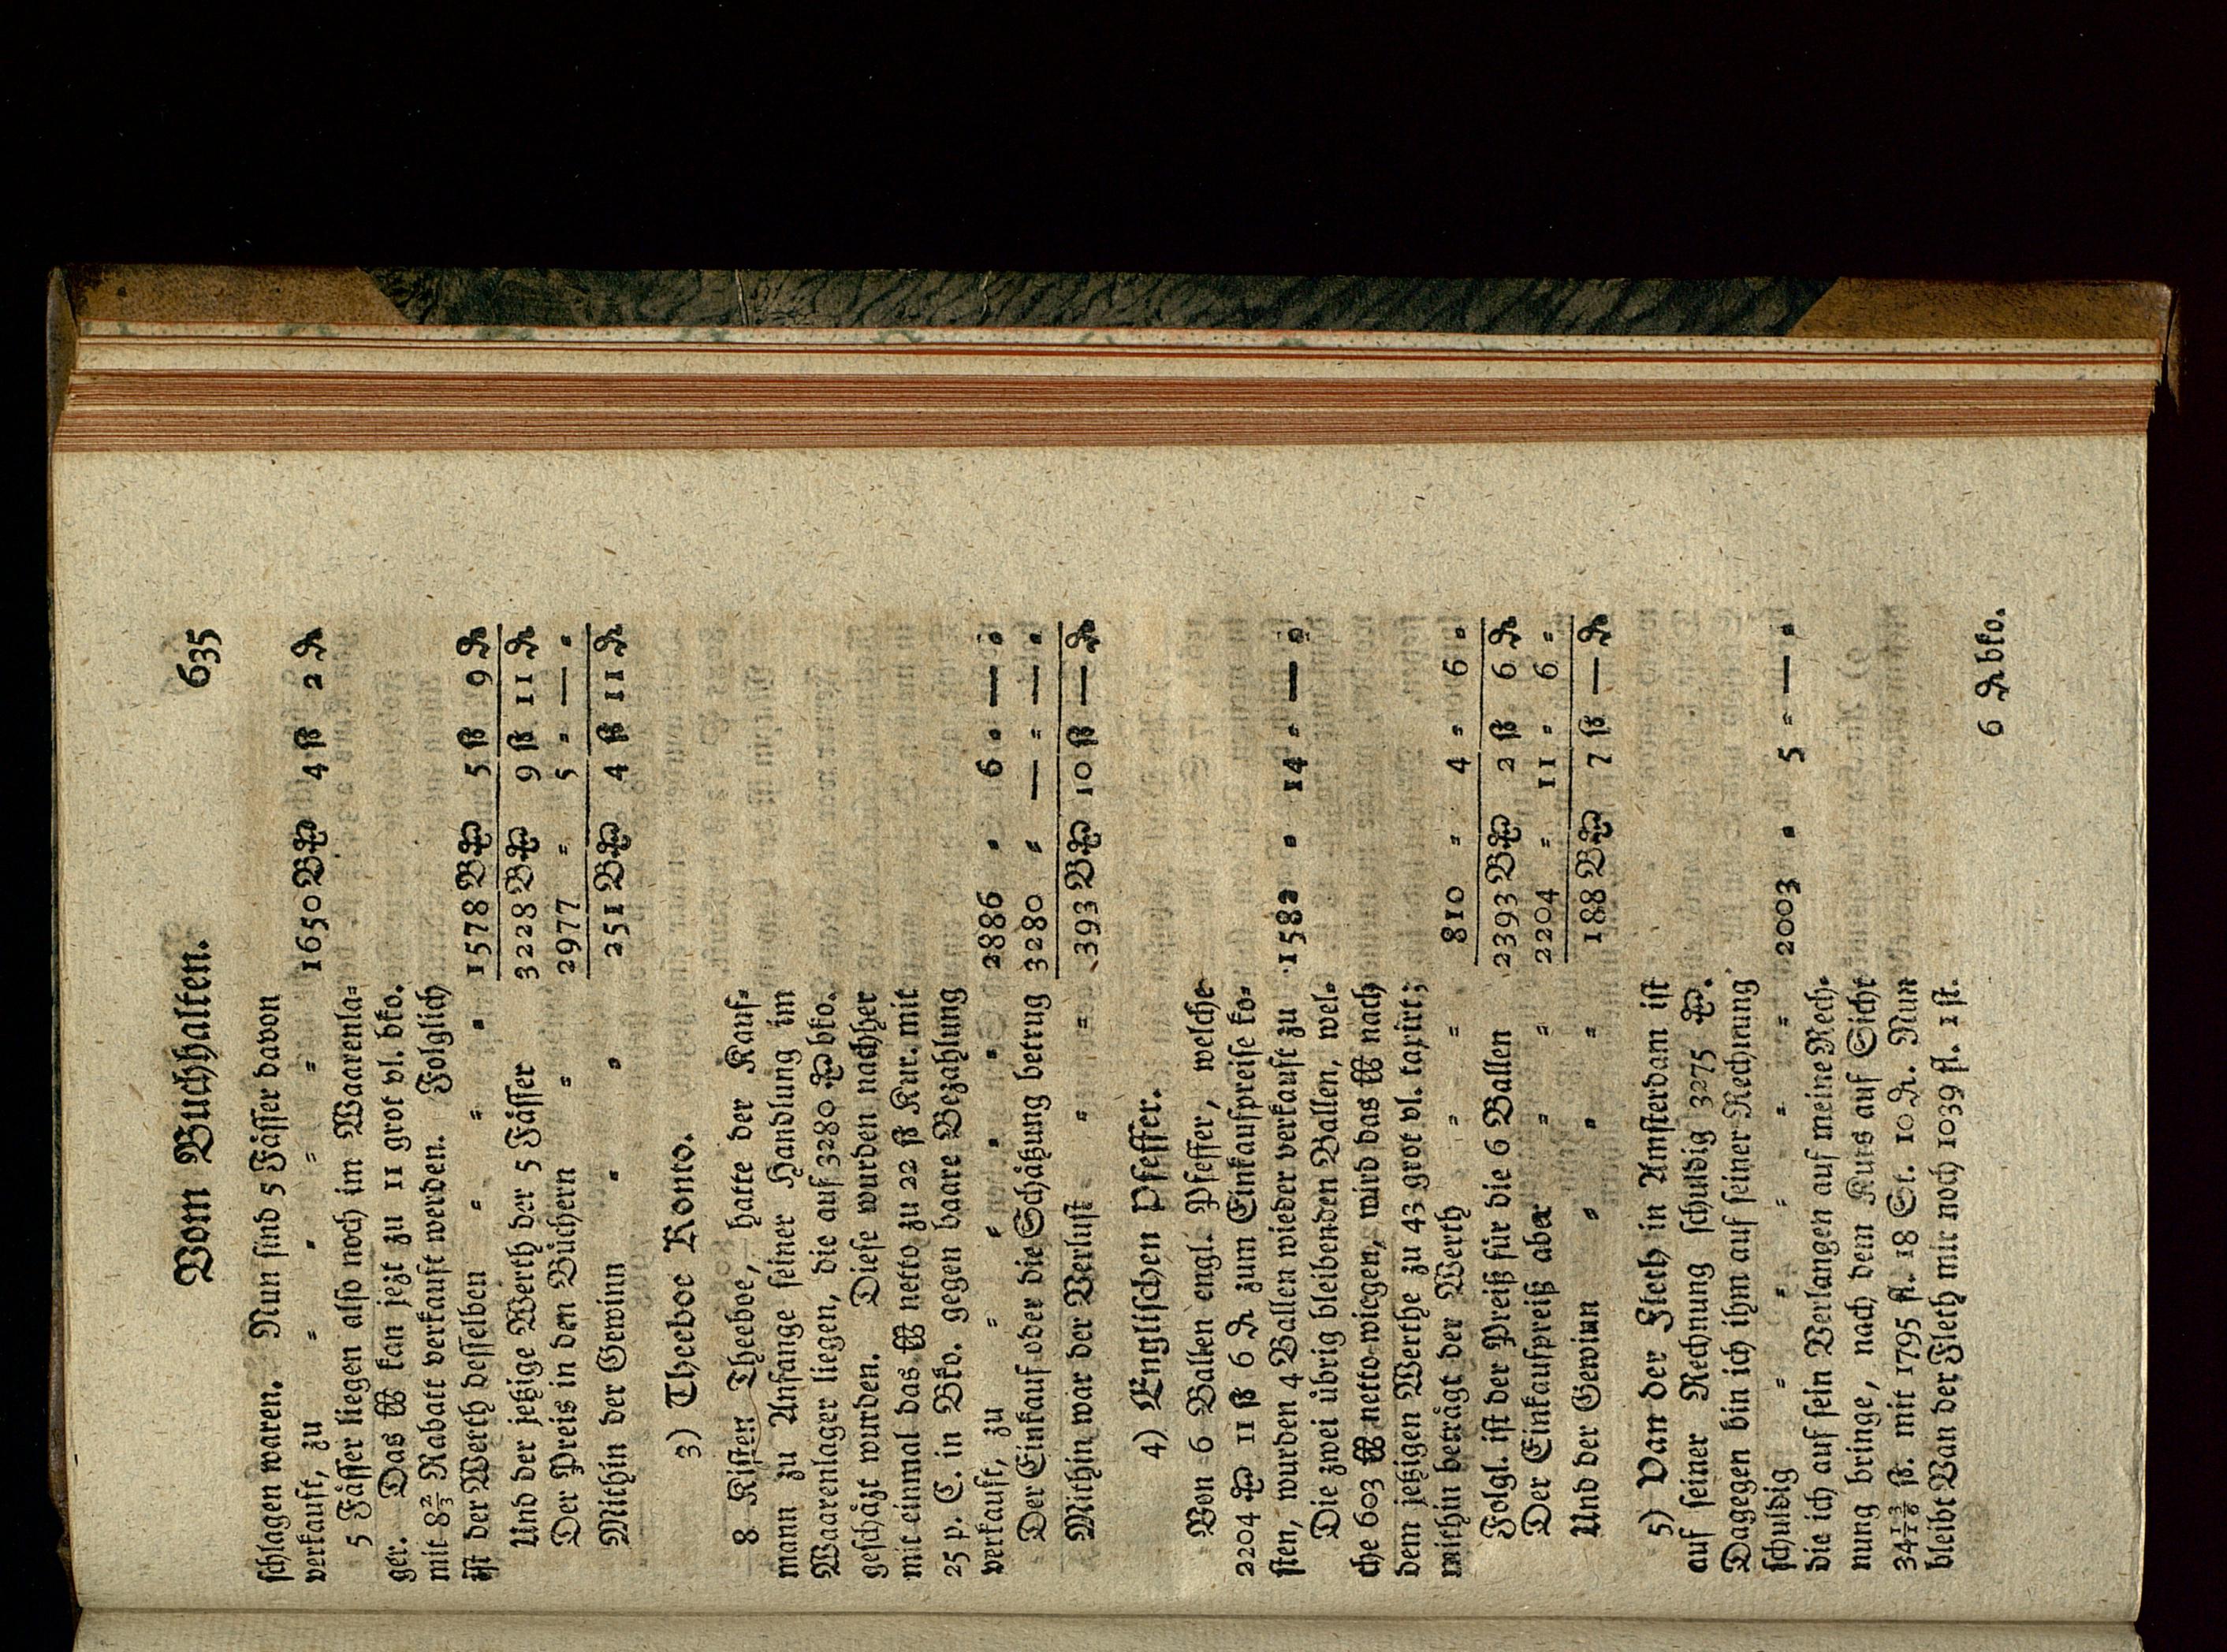 Vom Buchhalten. 635
schlagen waren. Nun sind 5 Fässer davon
verkauft, zu = = = = 1650 B℔ 4 ß 2 ₰
5 Fässer liegen also noch im Waarenla=
ger. Das ℔ kan jezt zu 11 grot vl. bko.
mit 8⅔ Rabatt verkauft werden. Folglich
ist der Werth desselben = = = 1578 B℔ 5 ß 9 ₰
Und der jetzige Werth der 5 Fässer 3228 B℔ 9 ß 11 ₰
Der Preis in den Büchern = 2977 = 5 = — =
Mithin der Gewinn = = 251 B℔ 4 ß 11 ₰
3) Theeboe Konto.
8 Kisten Theeboe, hatte der Kauf=
mann zu Anfange seiner Handlung im
Waarenlager liegen, die auf 3280 ℔ bko.
geschäzt wurden. Diese wurden nachher
mit einmal das ℔ netto zu 22 ß Kur. mit
25 p. C. in Bko. gegen baare Bezahlung
verkauft, zu = = = = 2886 = 6 = — =
Der Einkauf oder die Schätzung betrug 3280 = — = — =
Mithin war der Verlust = = 393 B℔ 10 ß — ₰
4) Englischen Pfeffer.
Von 6 Ballen engl. Pfeffer, welche
2204 ℔ 11 ß 6 ₰ zum Einkaufpreise ko=
sten, wurden 4 Ballen wieder verkauft zu 1582 = 14 = — =
Die zwei übrig bleibenden Ballen, wel=
che 603 ℔ netto wiegen, wird das ℔ nach
dem jetzigen Werthe zu 43 grot vl. taxirt;
mithin beträgt der Werth = = 810 = 4 = 6 =
Folgl. ist der Preiß für die 6 Ballen 2393 B℔ 2 ß 6 ₰
Der Einkaufpreiß aber = = 2204 = 11 = 6 =
Und der Gewinn = = = 188 B℔ 7 ß — ₰
5) Van der Fleth in Amsterdam ist
auf seiner Rechnung schuldig 3275 ℔.
Dagegen bin ich ihm auf seiner Rechnung
schuldig = = = = = 2003 = 5 = — =
die ich auf sein Verlangen auf meine Rech=
nung bringe, nach dem Kurs auf Sicht
34 13/16 ß. mit 1795 fl. 18 St. 10 ₰. Nun
bleibt Van der Fleth mir noch 1039 fl. 1 st.
6 ₰ bko.